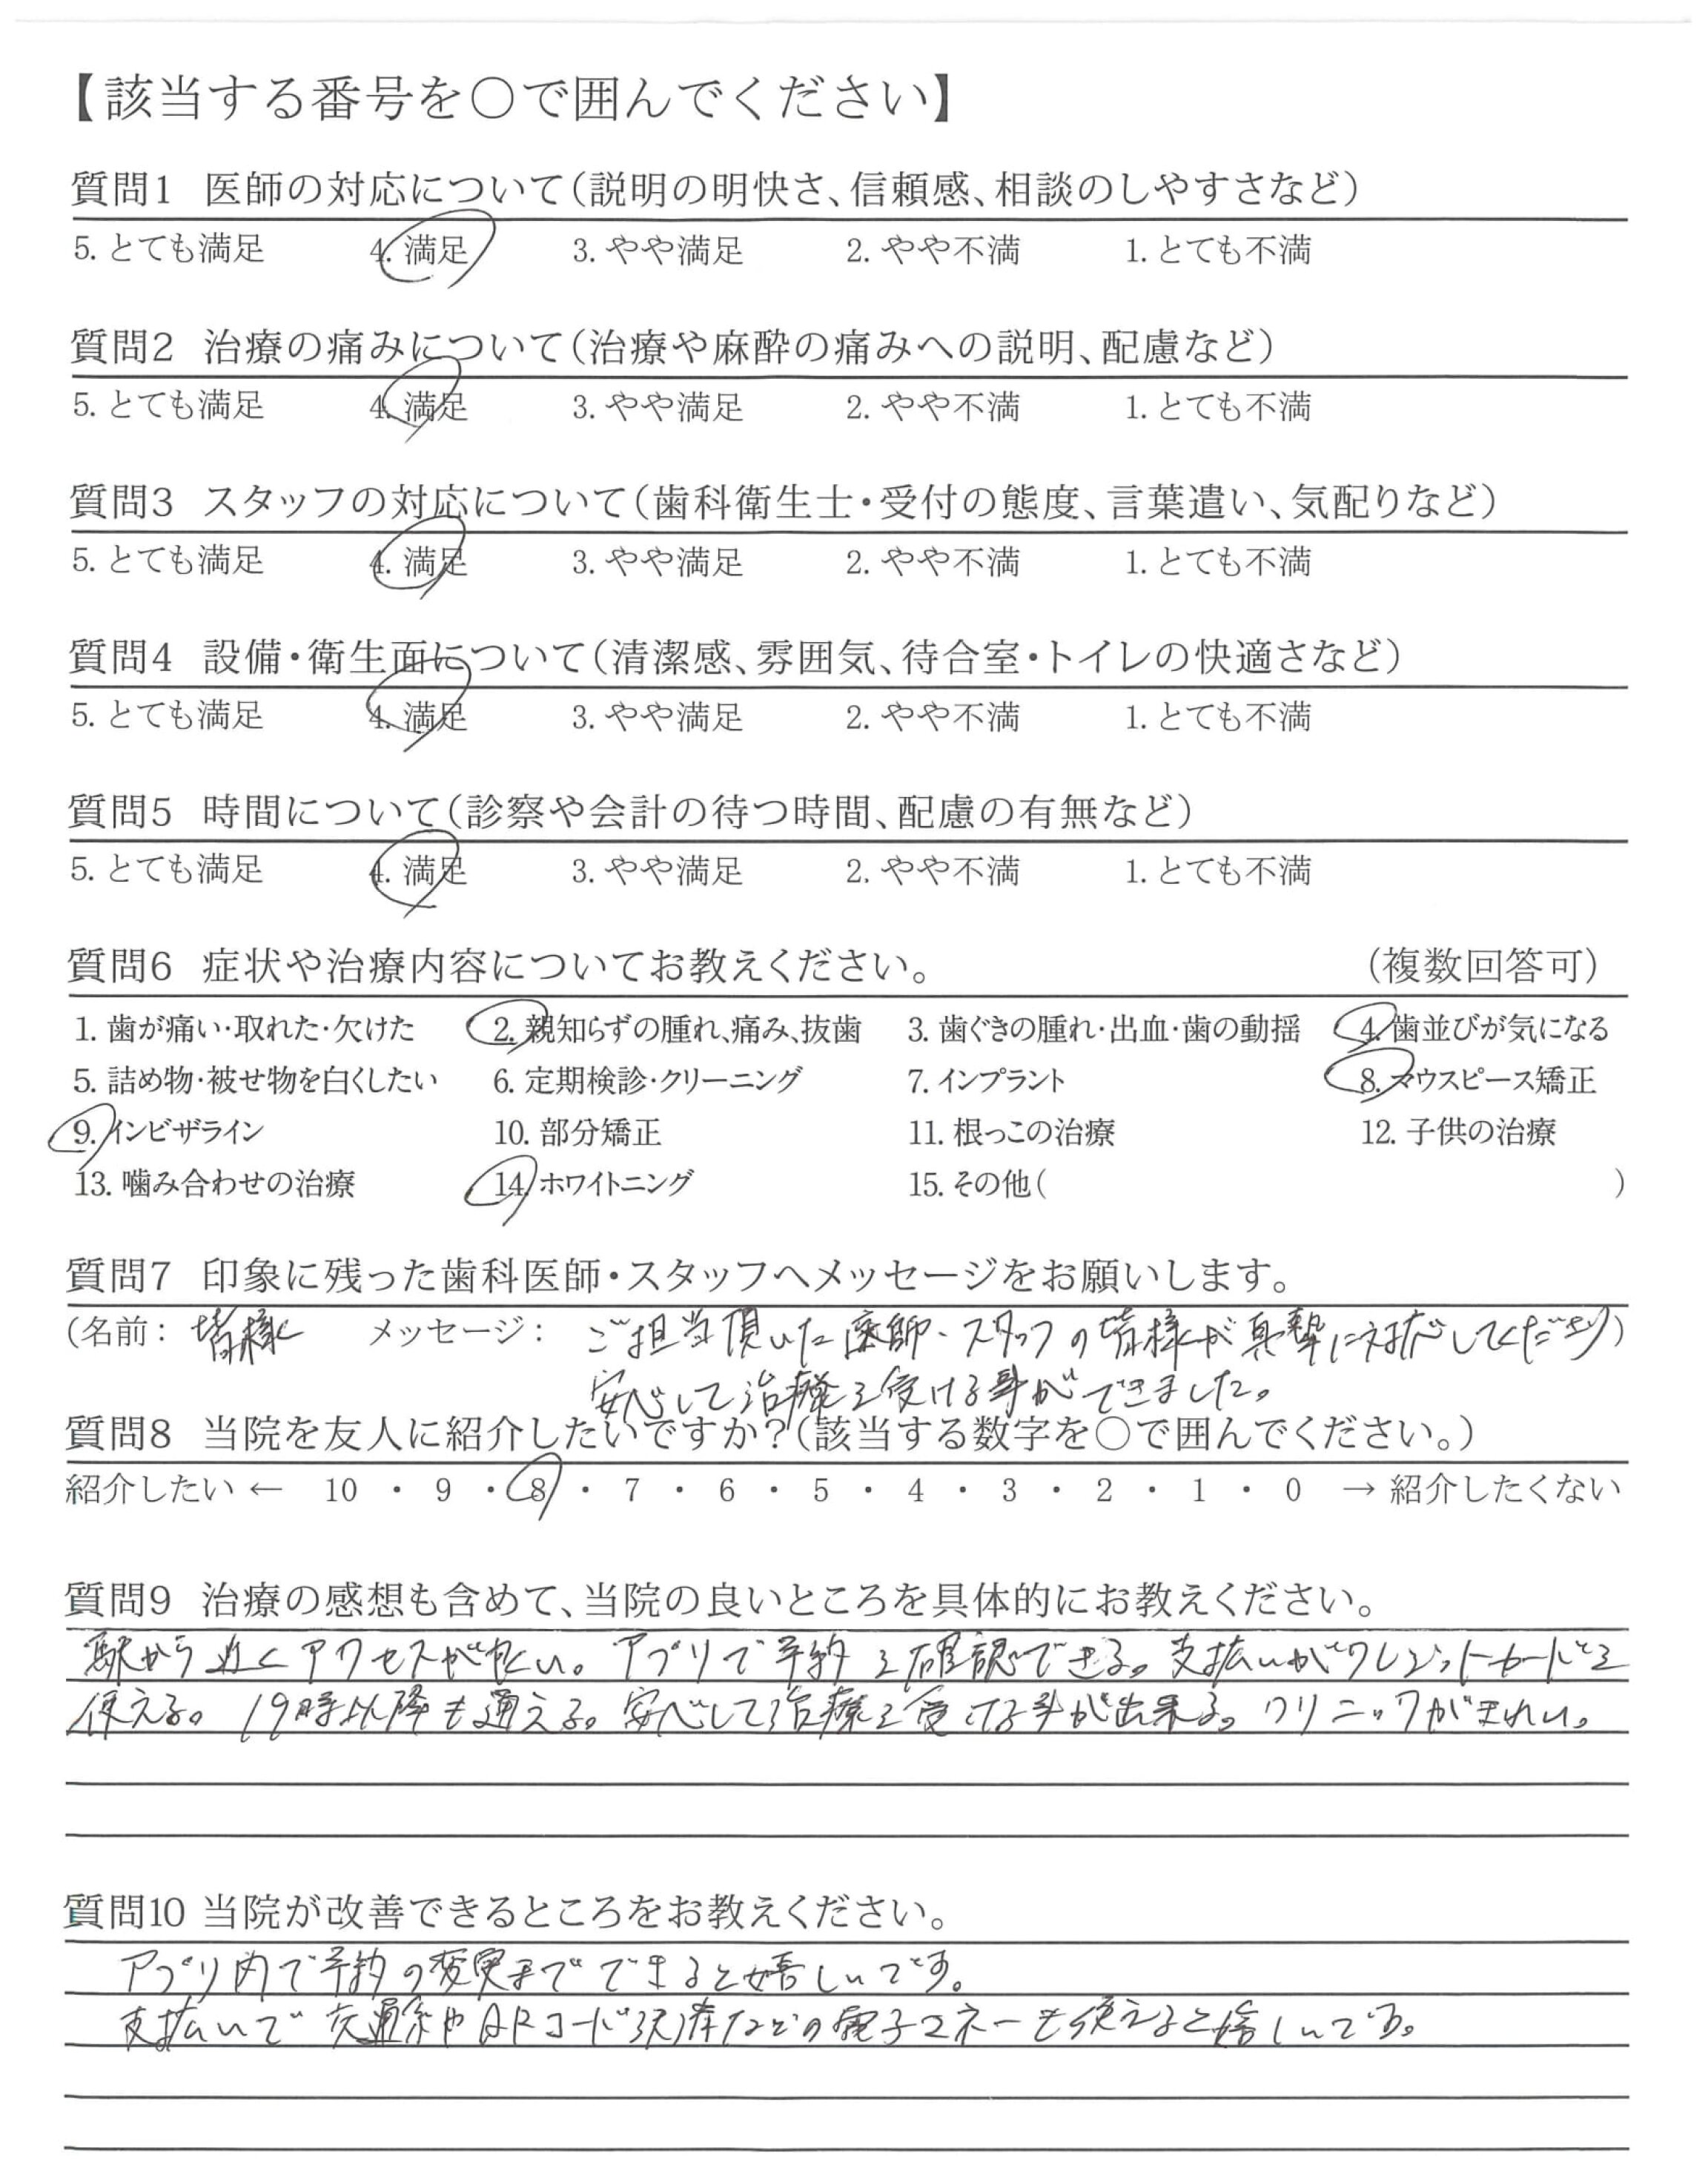 【該当する番号を○で囲んでください】
質問1 医師の対応について(説明の明快さ、信頼感、相談のしやすさなど)
5. とても満足 4. 満足 3. やや満足 2. やや不満 1. とても不満
質問2 治療の痛みについて(治療や麻酔の痛みへの説明、配慮など)
5. とても満足 4. 満足 3. やや満足 2. やや不満 1. とても不満
質問3 スタッフの対応について(歯科衛生士・受付の態度、言葉遣い、気配りなど)
5. とても満足 4. 満足 3. やや満足 2. やや不満 1. とても不満
質問4 設備・衛生面について(清潔感、雰囲気、待合室・トイレの快適さなど)
5. とても満足 4. 満足 3. やや満足 2. やや不満 1. とても不満
質問5 時間について(診察や会計の待つ時間、配慮の有無など)
5. とても満足 4. 満足 3. やや満足 2. やや不満 1. とても不満
質問6 症状や治療内容についてお教えください。 (複数回答可)
1. 歯が痛い・取れた・欠けた 2. 親知らずの腫れ、痛み、抜歯 3. 歯ぐきの腫れ・出血・歯の動揺 4. 歯並びが気になる
5. 詰め物・被せ物を白くしたい 6. 定期検診・クリーニング 7. インプラント 8. マウスピース矯正
9. インビザライン 10. 部分矯正 11. 根っこの治療 12. 子供の治療
13. 噛み合わせの治療 14. ホワイトニング 15. その他( )
質問7 印象に残った歯科医師・スタッフへメッセージをお願いします。
(名前: 皆様 メッセージ: ご担当頂いた医師・スタッフの皆様が真摯に対応してくださり)
安心して治療を受ける事ができました。
質問8 当院を友人に紹介したいですか?(該当する数字を○で囲んでください。)
紹介したい ← 10 ・ 9 ・ 8 ・ 7 ・ 6 ・ 5 ・ 4 ・ 3 ・ 2 ・ 1 ・ 0 → 紹介したくない
質問9 治療の感想も含めて、当院の良いところを具体的にお教えください。
駅から近くアクセスが良い。アプリで予約を確認できる。支払いがクレジットカードを
使える。19時以降も通える。安心して治療を受ける事が出来る。クリニックがきれい。
質問10 当院が改善できるところをお教えください。
アプリ内で予約の変更までできると嬉しいです。
支払いで交通系やQRコード決済などの電子マネーも使えると嬉しいです。